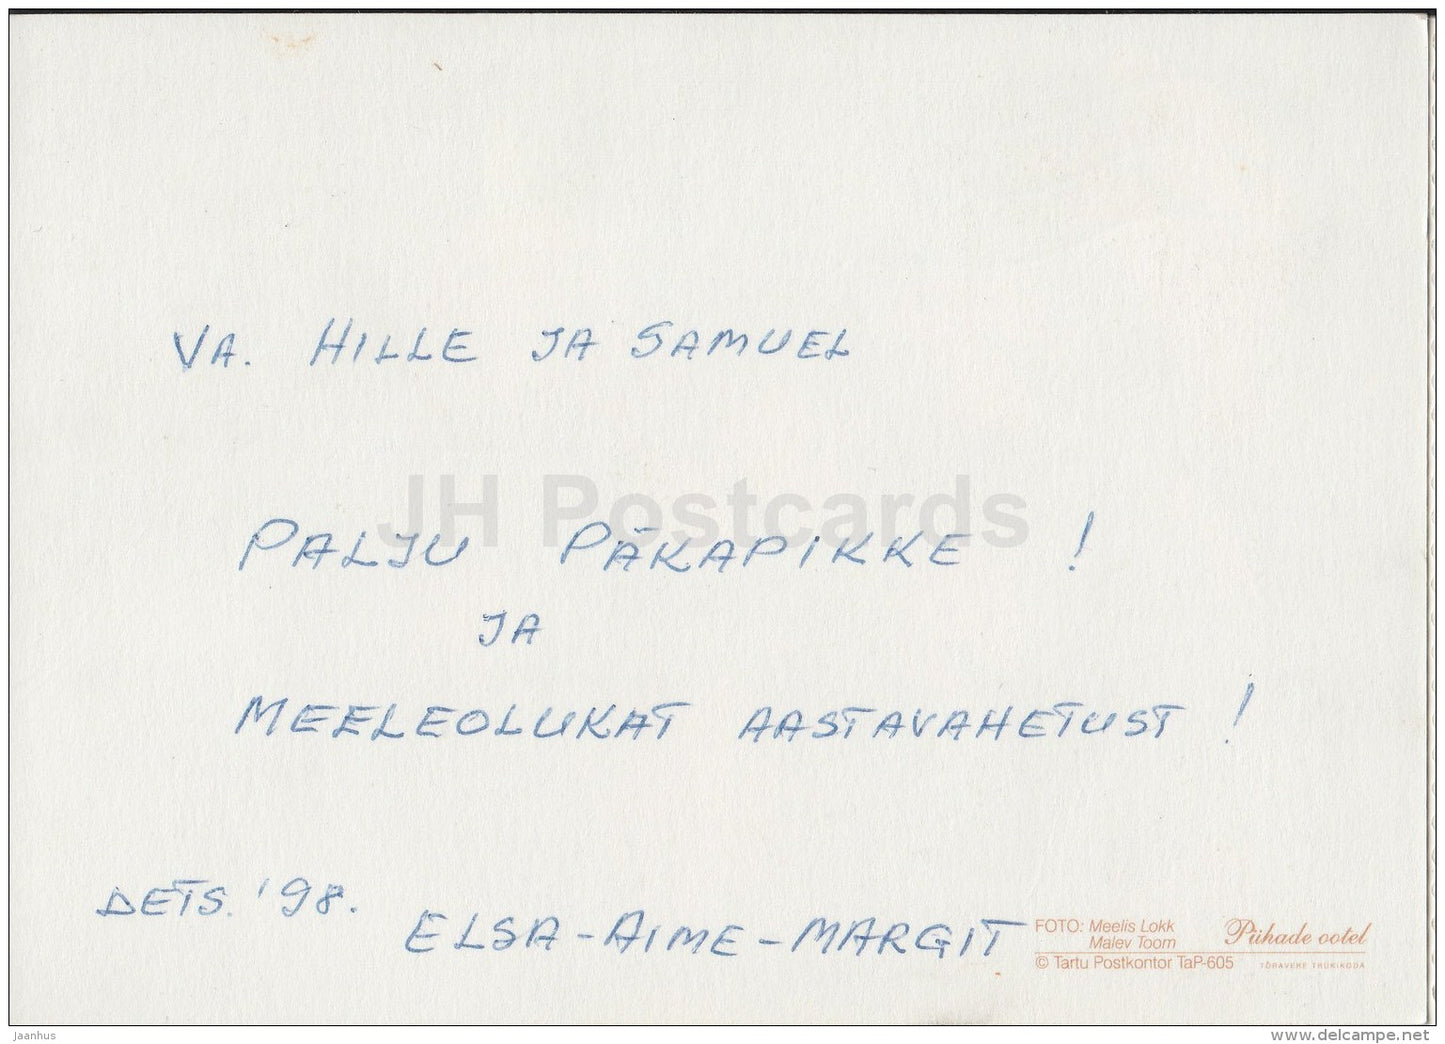 VA. HILLE JA SAMUEL
JH Postcards
PALJU PÄKAPIKKE !
JA
MEELEOLUKAT AASTAVAHETUST !
DETS. '98.
ELSA-AIME-MARGIT
FOTO: Meelis Lokk
Malev Toom
Pühade ootel
© Tartu Postkontor TaP-605
TÕRAVERE TRÜKIKODA
jaanhus
www.delcampe.net